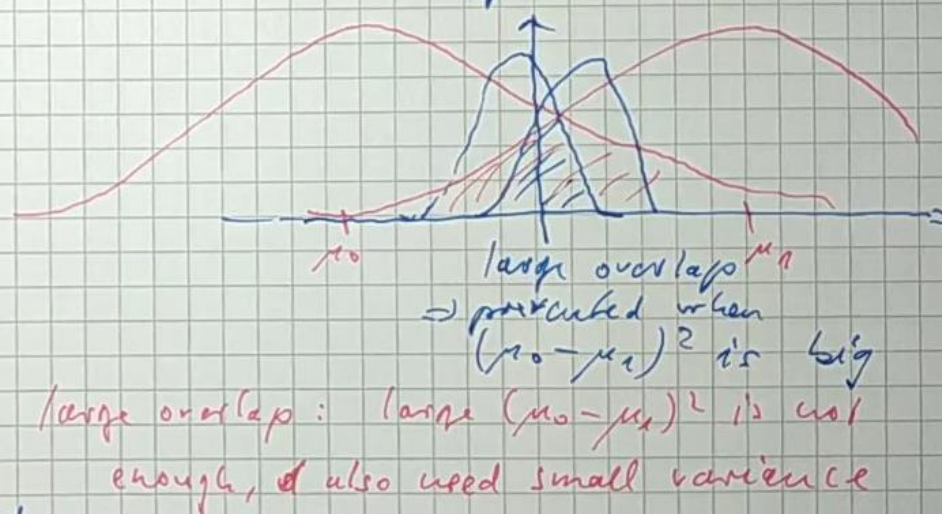 μ0 μ1
large overlap
⇒ prevented when
(μ0 - μ1)² is big
large overlap: large (μ0 - μ1)² is not
enough, also need small variance